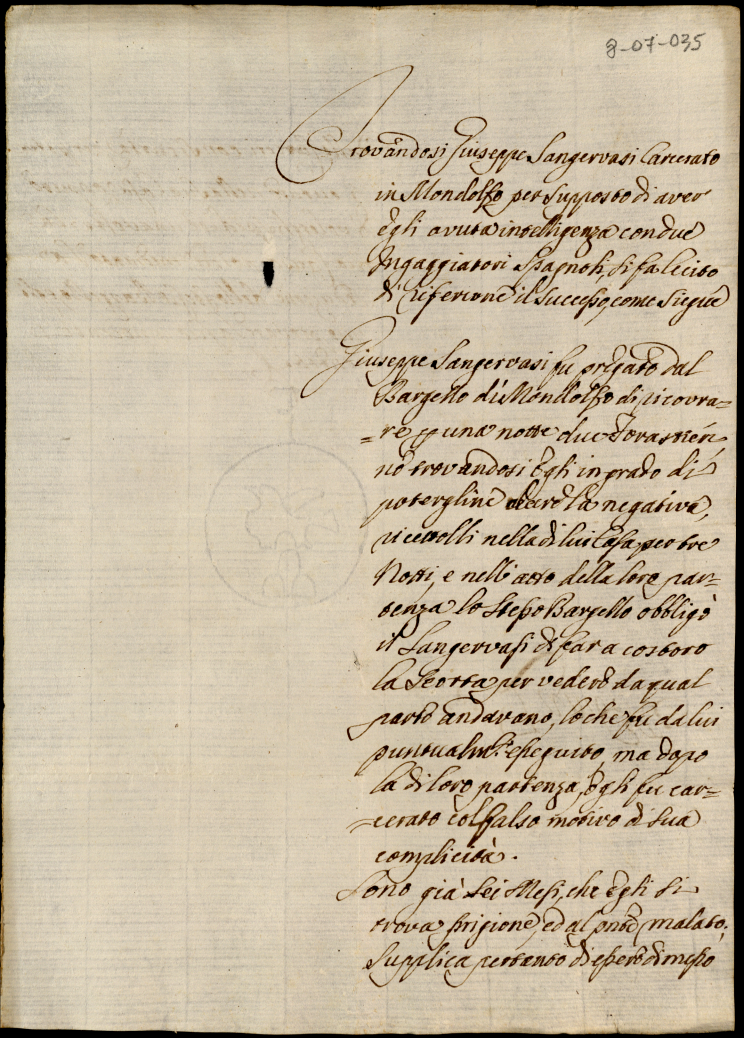 8-07-035
Trovandosi Giuseppe Sangervasi Carcerato
in Mondolfo per supposto di aver
Egli avuta intelligenza con due
Ingaggiatori Spagnoli, si fa lecito
di riferirne il Successo, come siegue
Giuseppe Sangervasi fu pregato dal
Bargello di Mondolfo di ricovra=
=re p una notte due Forastieri
nè trovandosi Egli in grado di
potergline dare la negativa,
ricettolli nella di lui Casa, per tre
Notti, e nell'atto della loro par=
tenza lo stesso Bargello obbligò
il Sangervasi di far a costoro
la Scorta per vedere da qual
parte andavano, lo che fu da lui
puntualmte eseguito, ma dopo
la di loro partenza, Egli fu car=
=cerato col falso motivo di sua
complicità.
Sono già sei Mesi, che Egli si
trova prigione, ed al pnte malato.
Supplica pertanto di essere dimesso